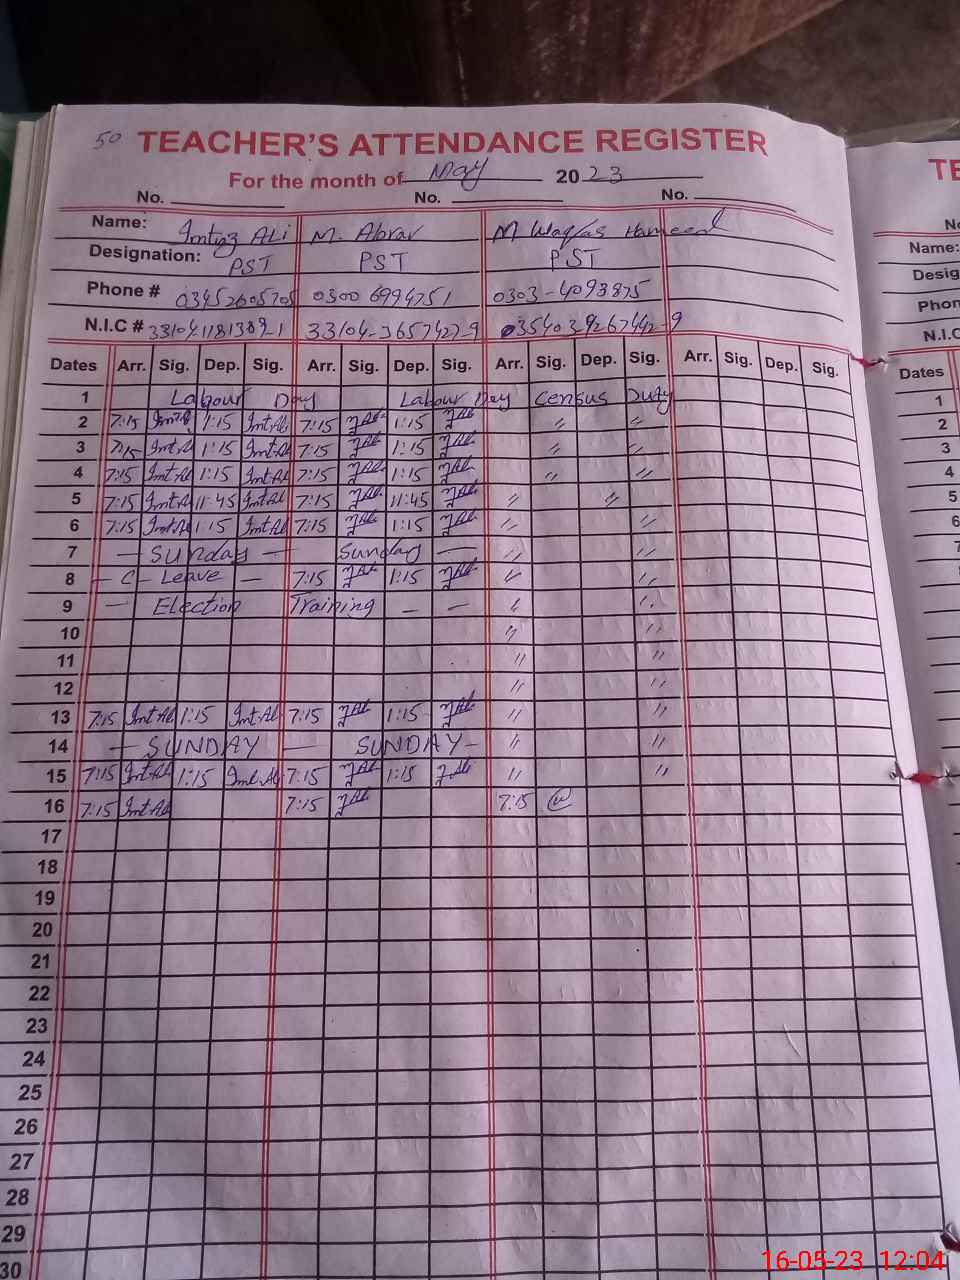 50 TEACHER'S ATTENDANCE REGISTER
For the month of May 2023
No. No. No.
Name: Imtiaz ALi M. Abrar M Waqas Hameed
Designation: PST PST PST
Phone # 03452605705 0300 6994751 0303-4093875
N.I.C # 33104-3657427-9
Dates Arr. Sig. Dep. Sig. Arr. Sig. Dep. Sig. Arr. Sig. Dep. Sig. Arr. Sig. Dep. Sig.
1 Labour Day Labour Day Census Duty
2 7:15 Imt.Al 1:15 Imt.Al 7:15 1:15 〃 〃
3 7:15 Imt.Al 1:15 Imt.Al 7:15 1:15 〃 〃
4 7:15 Imt.Al 1:15 Imt.Al 7:15 1:15 〃 〃
5 7:15 Imt.Al 11:45 Imt.Al 7:15 11:45 〃 〃
6 7:15 Imt.Al 1:15 Imt.Al 7:15 1:15 〃 〃
7 — Sunday — Sunday — 〃 〃
8 — C — Leave — 7:15 1:15 〃 〃
9 — Election Training — — 〃 〃
10 〃 〃
11 〃 〃
12 〃 〃
13 7:15 Imt.Al 1:15 Imt.Al 7:15 1:15 〃 〃
14 — SUNDAY — SUNDAY — 〃 〃
15 7:15 Imt.Al 1:15 Imt.Al 7:15 1:15 〃 〃
16 7:15 Imt.Al 7:15 7:15
17
18
19
20
21
22
23
24
25
26
27
28
29
30
TE
Name:
Desig
Phon
N.I.C
Dates
1
2
3
4
5
6
16-05-23 12:04